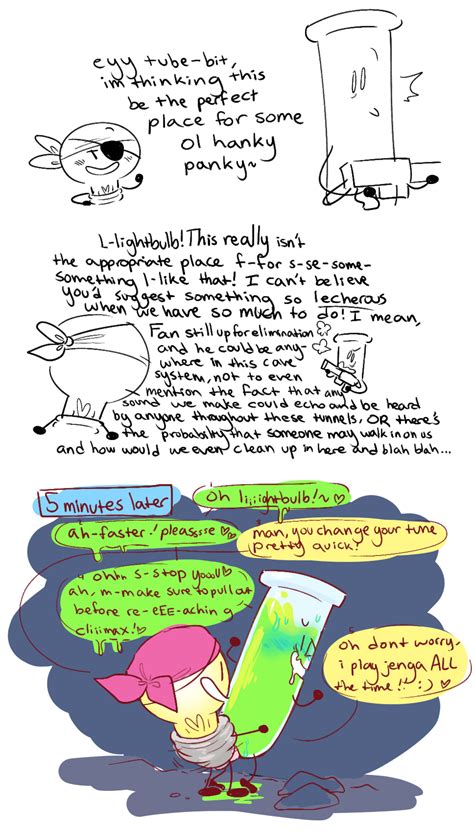 eyy tube-bit,
im thinking this
be the perfect
place for some
ol hanky
panky~
L-lightbulb! This really isn't
the appropriate place f-for s-se-some-
something l-like that! I can't believe
you'd suggest something so lecherous
when we have so much to do! I mean,
Fan still up for elimination
and he could be any-
where in this cave
system, not to even
mention the fact that any
sound we make could echo and be heard
by anyone throughout these tunnels, OR there's
the probability that someone may walk in on us
and how would we even clean up in here and blah blah...
5 minutes later
oh liiiightbulb!~
ah-faster! pleassse
man, you change your tune
pretty quick!
ohhh s-stop youu
ah, m-make sure to pull out
before re-eEE-aching
cliiimax!
oh dont worry,
i play jenga ALL
the time!! :)